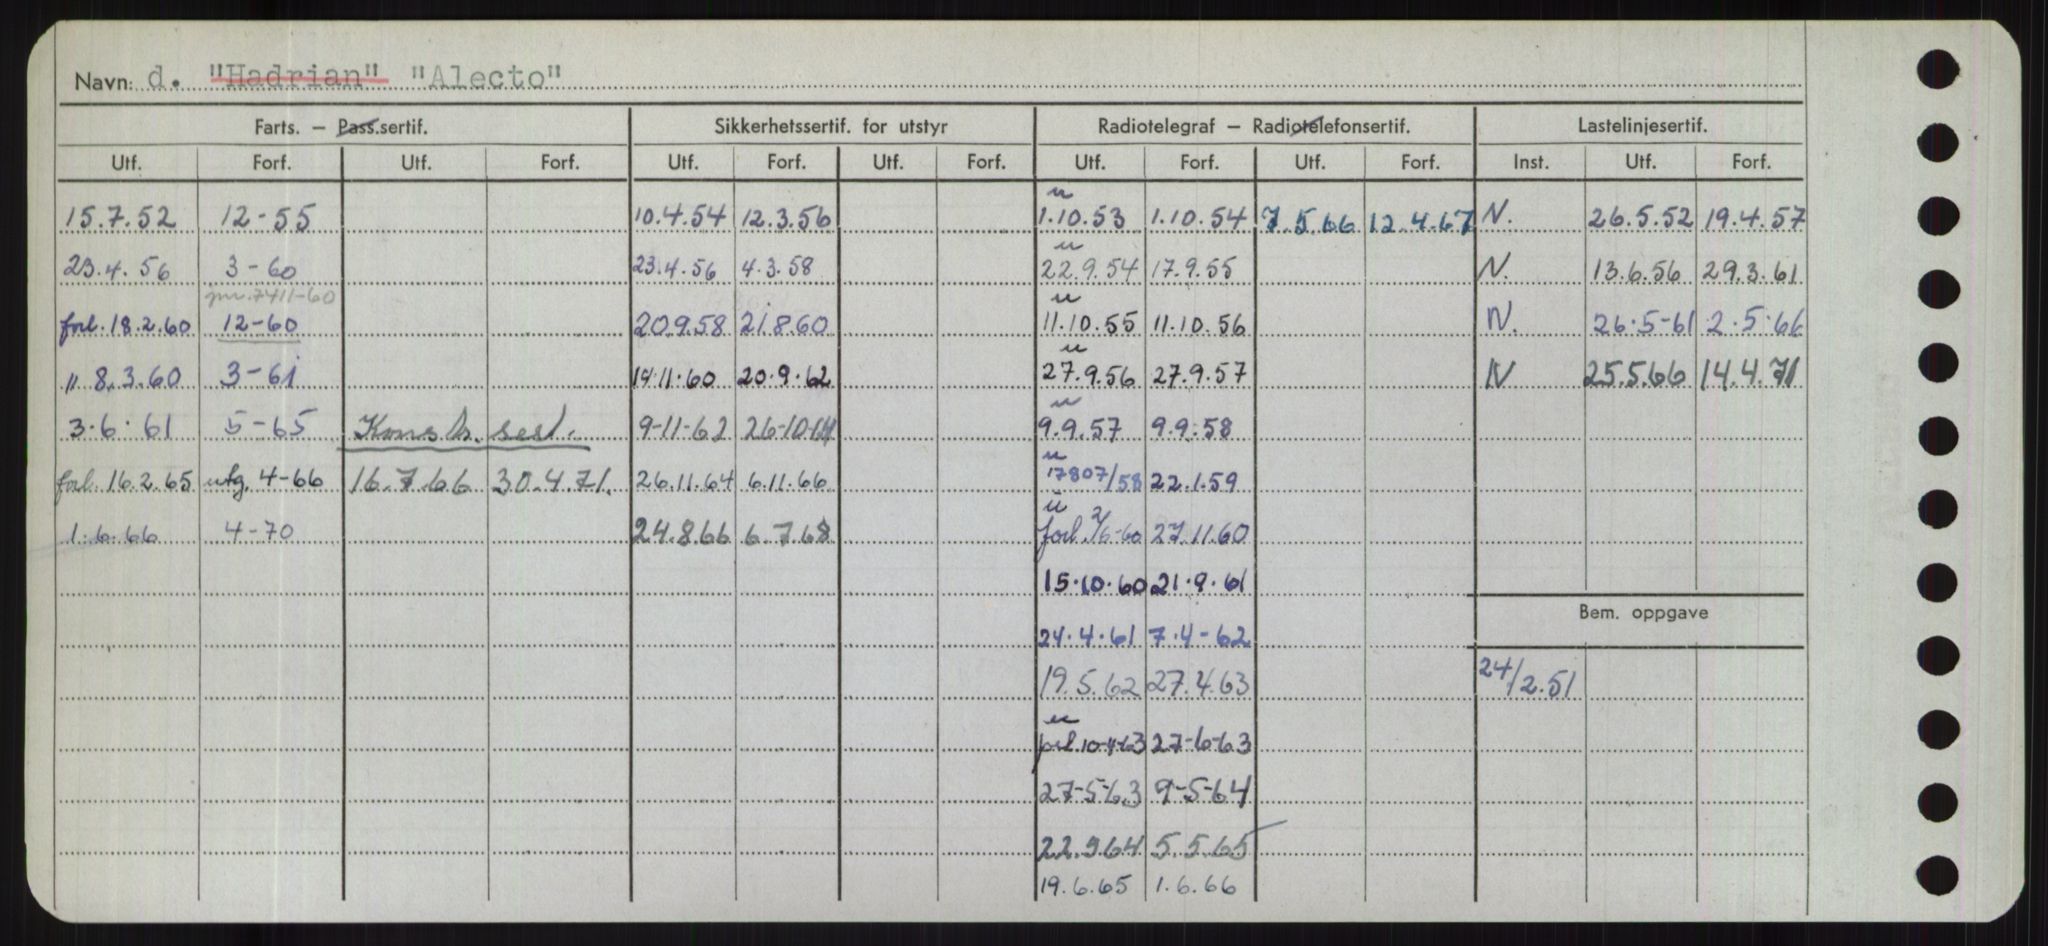 Navn: d. "Hadrian" "Alecto"
Farts. — Pass.sertif. Sikkerhetssertif. for utstyr Radiotelegraf — Radiotelefonsertif. Lastelinjesertif.
Utf. Forf. Utf. Forf. Utf. Forf. Utf. Forf. Utf. Forf. Utf. Forf. Inst. Utf. Forf.
u
15.7.52 12-55 10.4.54 12.3.56 1.10.53 1.10.54 7.5.66 12.4.67 N. 26.5.52 19.4.57
u
23.4.56 3-60 23.4.56 4.3.58 22.9.54 17.9.55 N. 13.6.56 29.3.61
7411-60 u
forl. 18.2.60 12-60 20.9.58 21.8.60 11.10.55 11.10.56 N. 26.5-61 2.5.66
u
" 8.3.60 3-61 14.11.60 20.9.62 27.9.56 27.9.57 N 25.5.66 14.4.71
u
3.6.61 5-65 Konstr. sert. 9-11-62 26-10-64 9.9.57 9.9.58
u
forl. 16.2.65 utg. 4-66 16.7.66 30.4.71. 26.11.64 6.11.66 17807/58 22.1.59
u
1.6.66 4-70 24.8.66 6.7.68 forl. 2/6-60 27.11.60
15.10.60 21.9.61
Bem. oppgave
24.4.61 7.4-62
19.5.62 27.4.63 24/2.51
u
forl 10-4-63 27-6-63
27-5-63 9-5-64
22.9.64 5.5.65
19.6.65 1.6.66